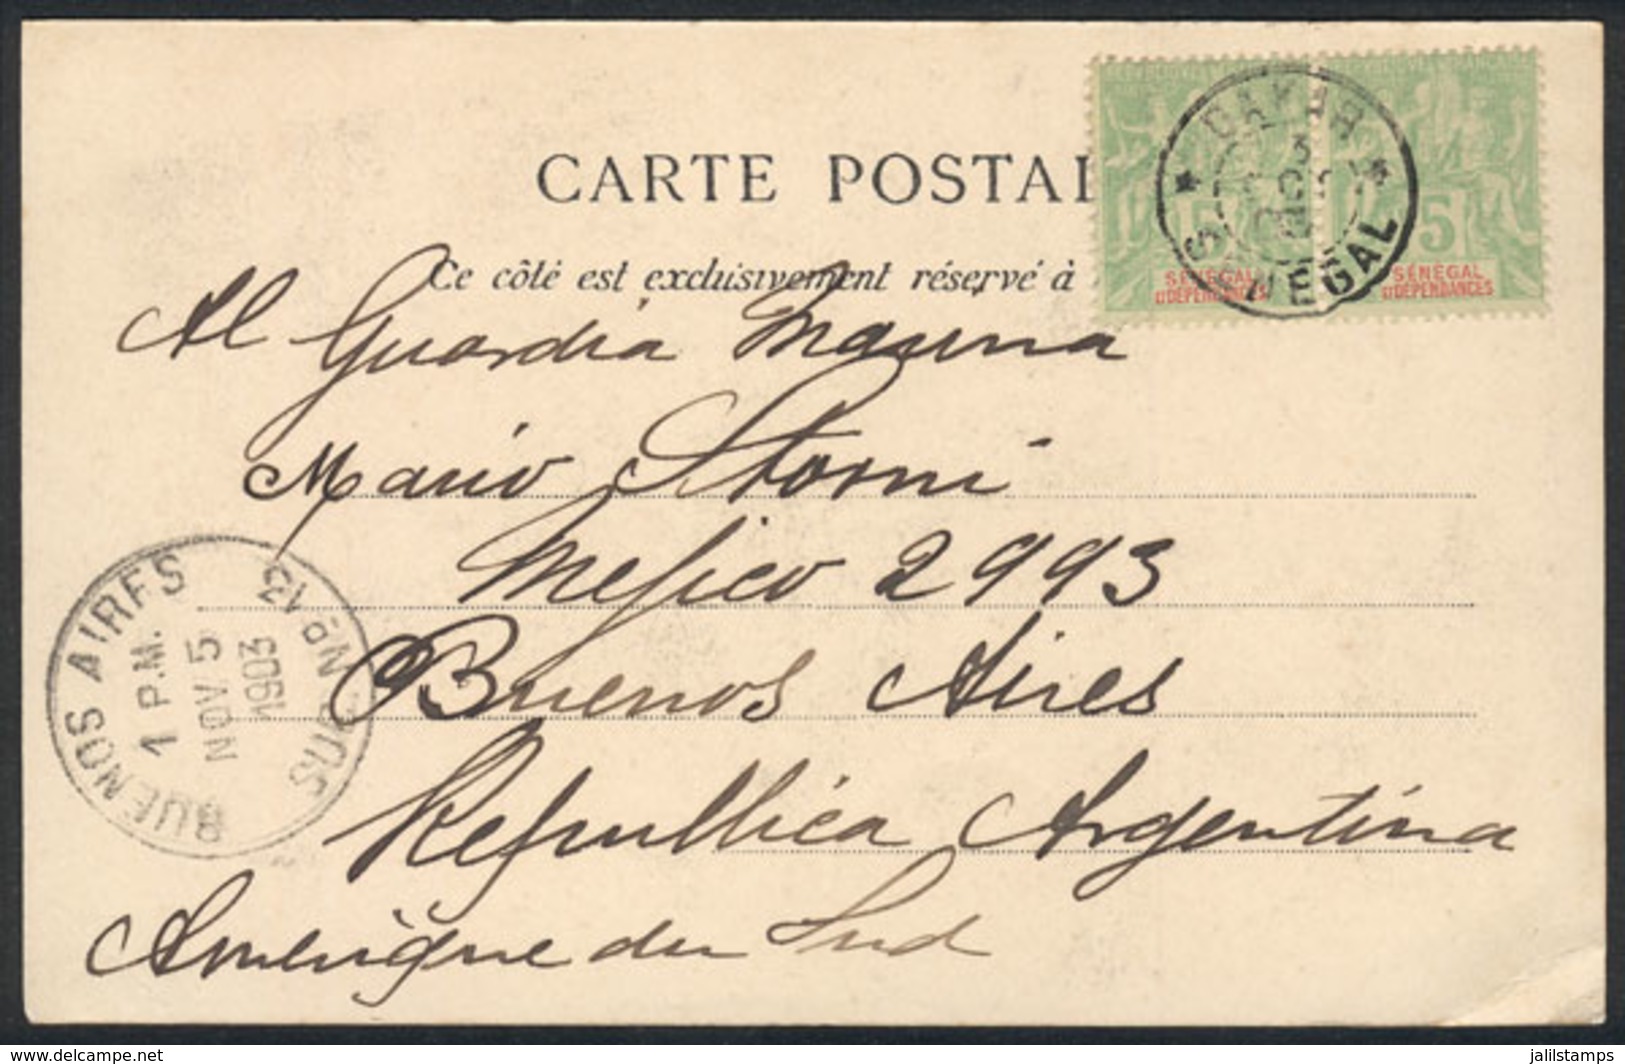 CARTE POSTAL
Ce côté est exclusivement réservé à
DAKAR
SENEGAL
5
SÉNÉGAL
ET DÉPENDANCES
5
SÉNÉGAL
ET DÉPENDANCES
Al Guardia Marina
Mario Storni
Mejico 2993
Buenos Aires
Republica Argentina
Amérique du Sud
BUENOS AIRES
1 P.M.
NOV 5
1903
delcampe.net
jalilstamps